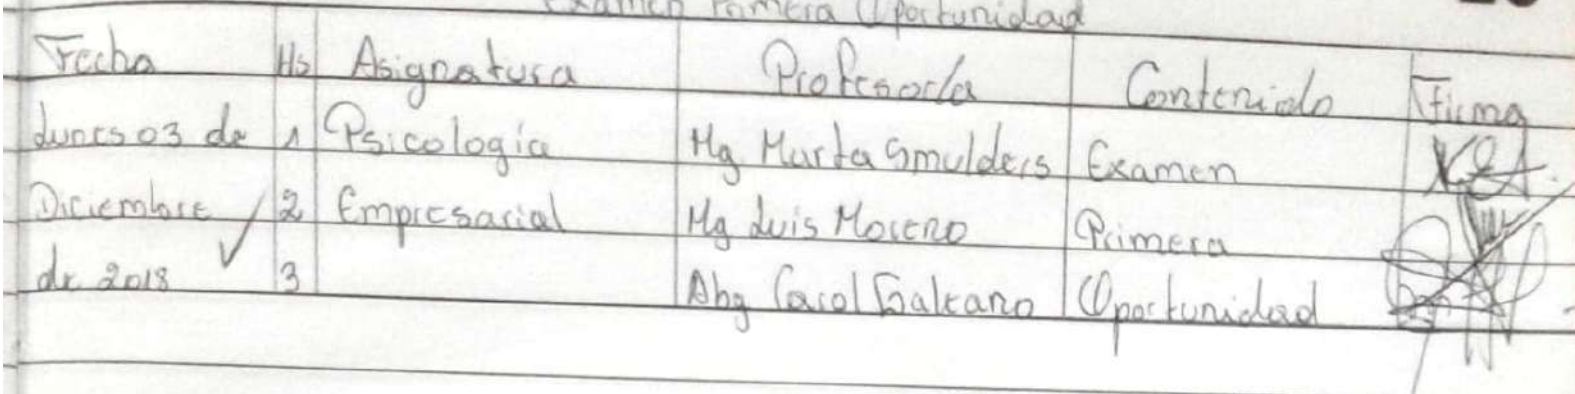 Examen Primera Oportunidad
Fecha Hs Asignatura Profesor/a Contenido Firma
Lunes 03 de 1 Psicología Mg Marta Smulders Examen
Diciembre 2 Empresarial Mg Luis Moreno Primera
de 2018 3 Abg Carol Galeano Oportunidad